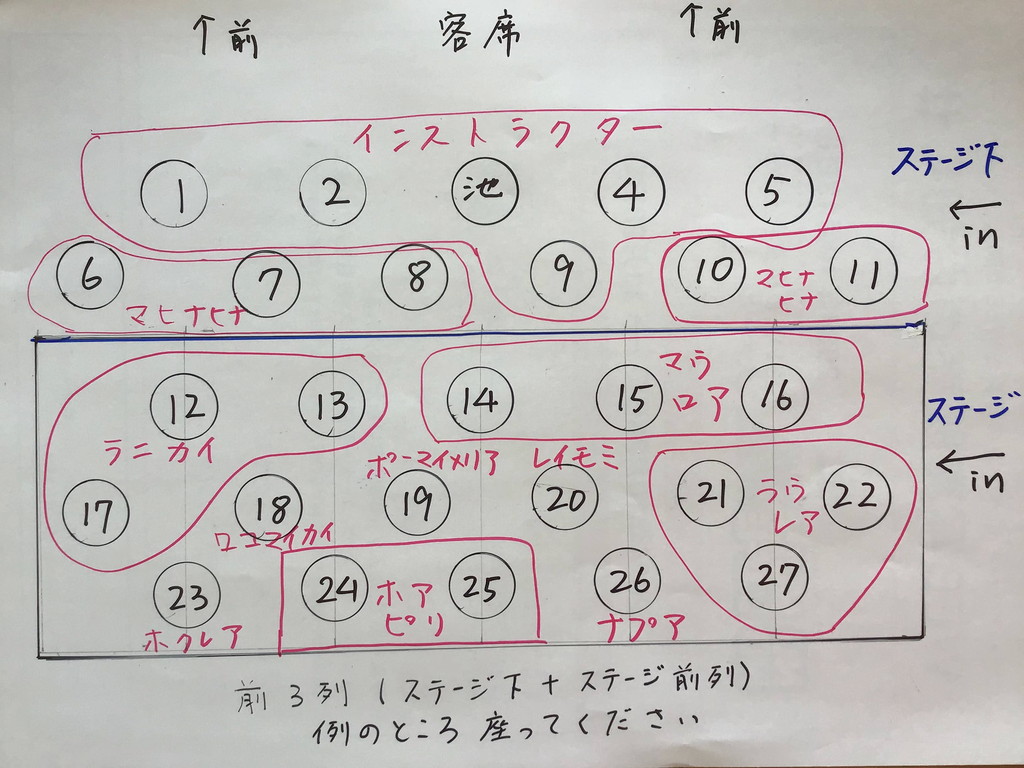 ↑前 客席 ↑前
インストラクター
1 2 池 4 5
ステージ下
← in
6 7 8 9 10 11
マヒナヒナ
マヒナ
ヒナ
12 13 14 15 16
マウ
ロア
ステージ
← in
ラニカイ
ポーマイメリア
レイモミ
17 18 19 20 21 22
ロコマイカイ
ラウ
レア
23 24 25 26 27
ホア
ピリ
ホクレア
ナプア
前3列(ステージ下+ステージ前列)
例のところ座ってください